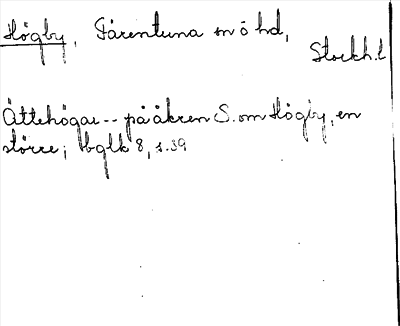 Högby, Färentuna sn ö hd,
Stockh.l
Ättehögar -- på åkren S. om Högby, en
större; bglk 8, s.39